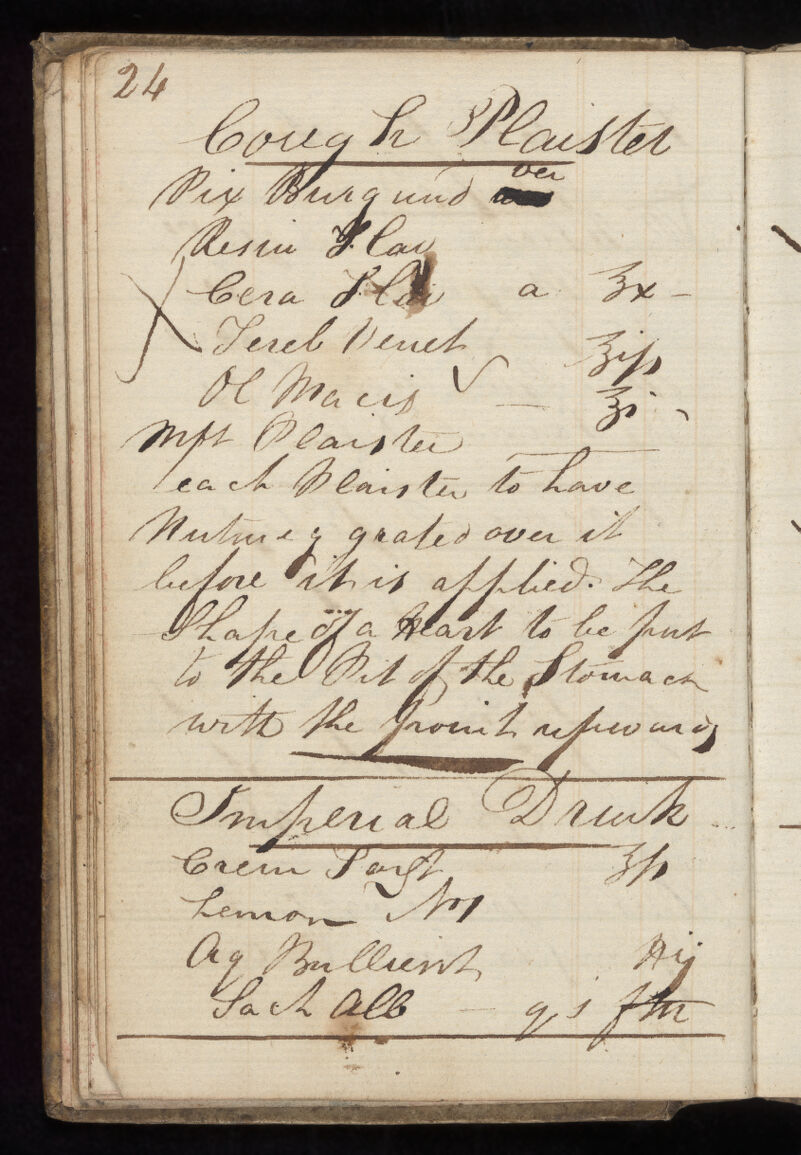 24
Cough Plaister
Pix Burgund over
Resin Flav
Cera Flav a ʒx -
Tereb Venet ʒiſs
Ol Macis - ʒi
Mft Plaister
each Plaister to have
Nutmeg grated over it
before it is applied. The
Shape of a Heart to be put
to the Pit of the Stomach
with the point upwards
Imperial Drink
Crem Tart ʒſs
Lemon No 1
Aq Bullient ℔ij
Sach Alb - qs